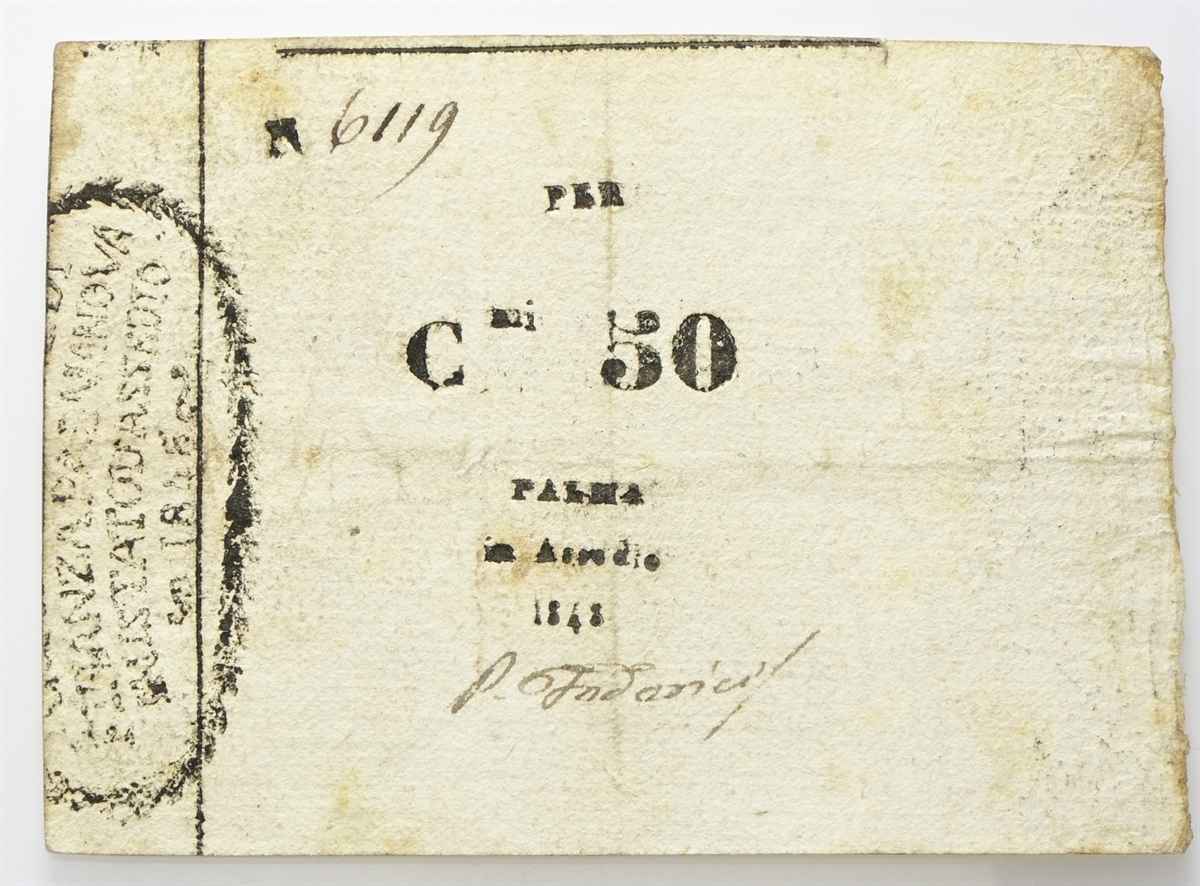 N 6119
PER
C mi 50
PALMA
in Assedio
1848
P.
PALMANOVA
STATO D'ASSEDIO
1848